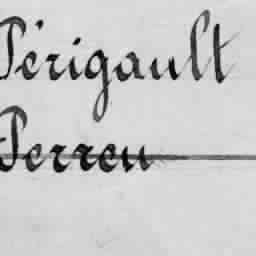 Périgault
Perreu